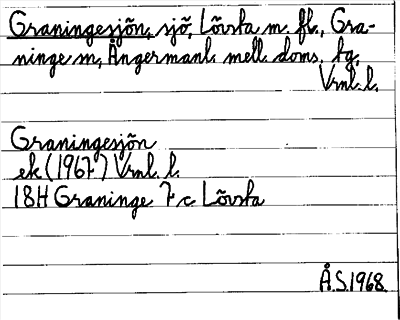 Graningesjön, sjö, Lövsta m. fl., Gra-
ninge sn, Ångermanl. mell. doms. tg.
Vrnl. l.
Graningesjön
ek (1967) Vrnl. l.
18H Graninge 7 c Lövsta
Å.S.1968.